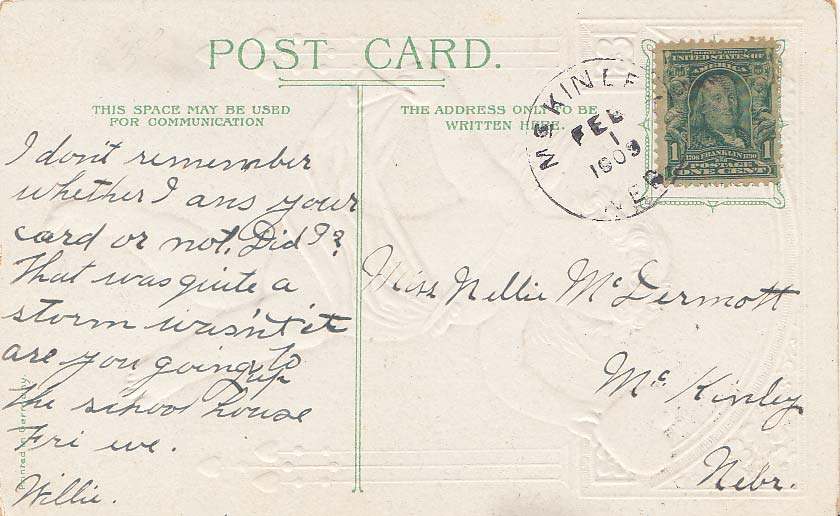 POST CARD.
THIS SPACE MAY BE USED
FOR COMMUNICATION
THE ADDRESS ONLY TO BE
WRITTEN HERE.
McKINLE
FEB
1
1909
NEB
UNITED STATES OF
AMERICA
1 1706 FRANKLIN 1790 1
POSTAGE
ONE CENT
I don't remember
whether I ans your
card or not. Did I?
That was quite a
storm wasn't it
are you going up to
the school house
Fri eve.
Willie.
Miss Nellie McDermott
McKinley
Nebr.
Printed in Germany.